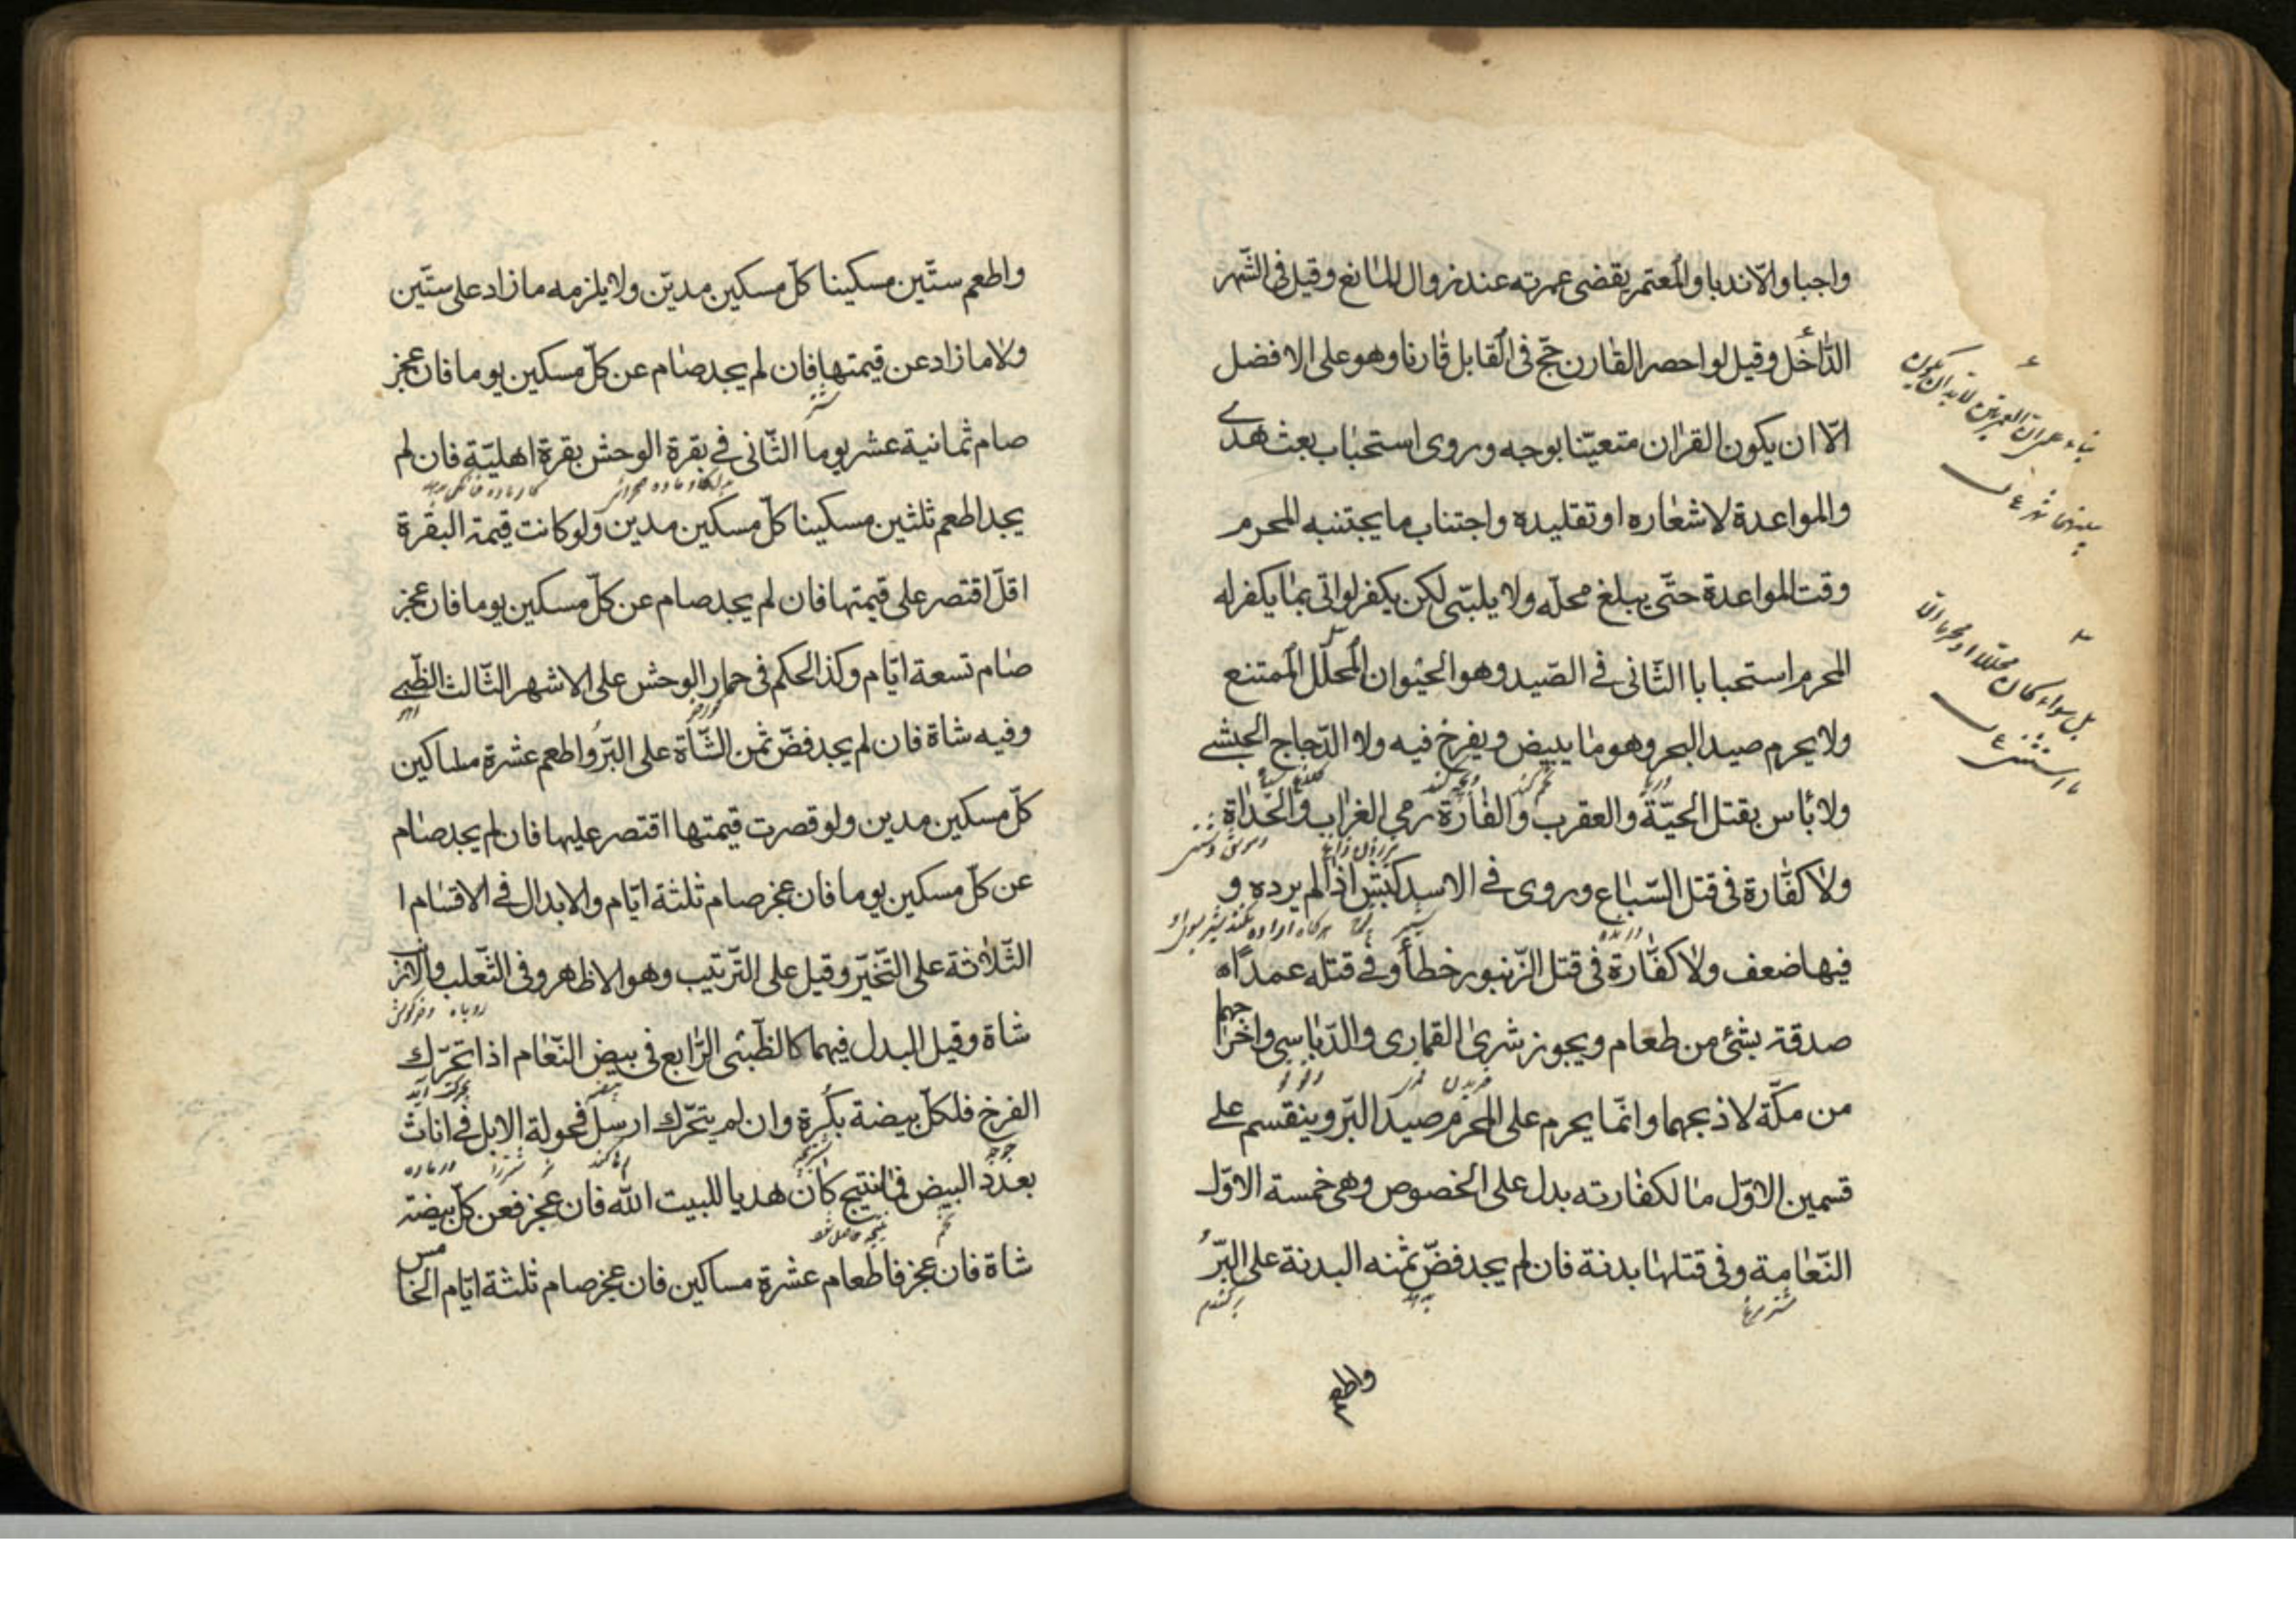 واجبا والّا ندبا والمعتمر يقضى عمرته عند زوال المانع وقيل فى الشّهر
الدّاخل وقيل لو احصر القارن حجّ فى القابل قارنا وهو على الافضل
الّا ان يكون القران متعيّنا بوجه وروى استحباب بعث هدى
والمواعدة لاشعاره او تقليده واجتناب ما يجتنبه المحرم
وقت المواعدة حتّى يبلغ محلّه ولا يلبّى لكن يكفر لو اتى بما يكفر له
المحرم استحبابا الثّانى فى الصّيد وهو الحيوان المحلّل الممتنع
ولا يحرم صيد البحر وهو ما يبيض ويفرخ فيه ولا الدّجاج الحبشى
ولا باس بقتل الحيّة والعقرب والفأرة رمى الغراب والحداة
ولا كفّارة فى قتل السّباع وروى فى الاسد كبش اذا لم يرده و
فيها ضعف ولا كفّارة فى قتل الزّنبور خطأ وفى قتله عمداً
صدقة بشئ من طعام ويجوز شرى القمارى والدّباسى واخراجهما
من مكّة لا ذبحهما وانّما يحرم على المحرم صيد البرّ وينقسم على
قسمين الاوّل ما لكفارته بدل على الخصوص وهى خمسة الاوّل
النّعامة وفى قتلها بدنة فان لم يجد فضّ ثمنه البدنة على البرّ
واطعم
واطعم ستّين مسكينا كلّ مسكين مدين ولا يلزمه ما زاد على ستّين
ولا ما زاد عن قيمتها فان لم يجد صام عن كلّ مسكين يوما فان عجز
صام ثمانية عشر يوما الثّانى فى بقرة الوحش بقرة اهليّة فان لم
يجد اطعم ثلثين مسكينا كلّ مسكين مدين ولو كانت قيمة البقرة
اقلّ اقتصر على قيمتها فان لم يجد صام عن كلّ مسكين يوما فان عجز
صام تسعة ايّام وكذا الحكم فى حمار الوحش على الاشهر الثّالث الظّبى
وفيه شاة فان لم يجد فضّ ثمن الشّاة على البرّ واطعم عشرة مساكين
كلّ مسكين مدين ولو قصرت قيمتها اقتصر عليها فان لم يجد صام
عن كلّ مسكين يوما فان عجز صام ثلثة ايّام والابدال فى الاقسام ا
الثّلاثة على التّخيّر وقيل على التّرتيب وهو الاظهر وفى الثّعلب والارنب
روباه وخرگوش
شاة وقيل البدل فيهما كالظّبى الرّابع فى بيض النّعام اذا تحرّك
الفرخ فلكلّ بيضة بكرة وان لم يتحرّك ارسل فحولة الابل فى اناث
بعدد البيض فما نتج كان هديا للبيت الله فان عجز فعن كلّ بيضة
شاة فان عجز فاطعام عشرة مساكين فان عجز صام ثلثة ايّام الخامس